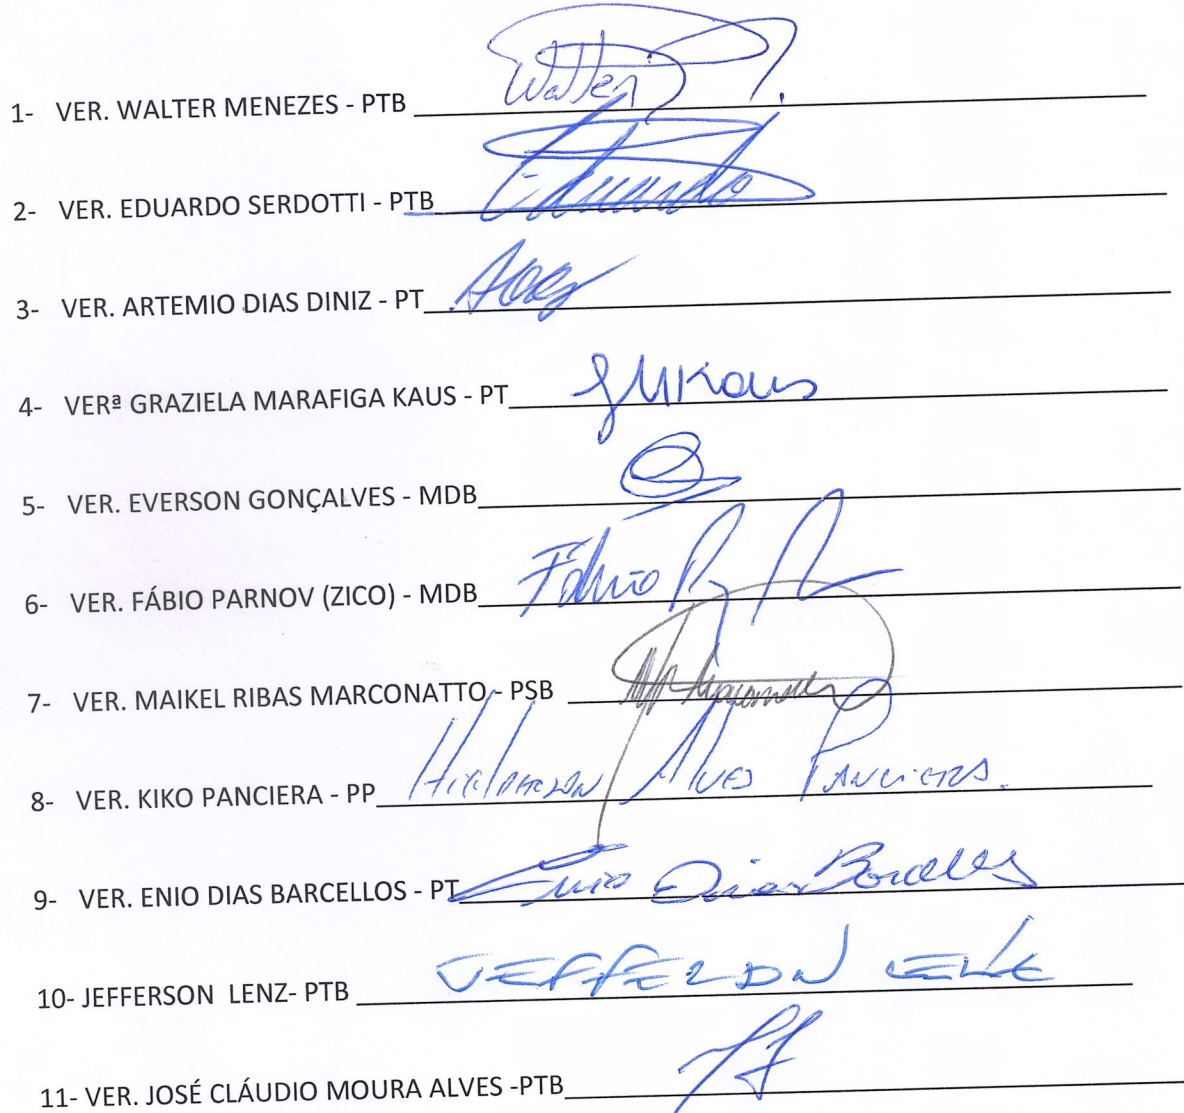 1- VER. WALTER MENEZES - PTB Walter
2- VER. EDUARDO SERDOTTI - PTB Eduardo
3- VER. ARTEMIO DIAS DINIZ - PT
4- VERª GRAZIELA MARAFIGA KAUS - PT GMKaus
5- VER. EVERSON GONÇALVES - MDB
6- VER. FÁBIO PARNOV (ZICO) - MDB Fábio
7- VER. MAIKEL RIBAS MARCONATTO - PSB
8- VER. KIKO PANCIERA - PP Alves Panciera.
9- VER. ENIO DIAS BARCELLOS - PT Enio Dias Barcellos
10- JEFFERSON LENZ- PTB JEFFERSON
11- VER. JOSÉ CLÁUDIO MOURA ALVES -PTB